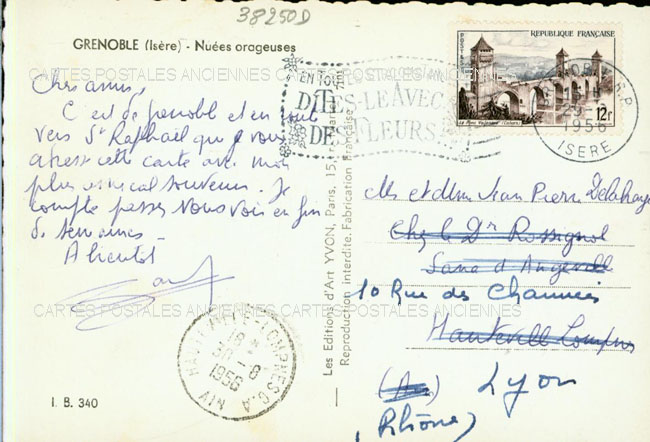 38250D
GRENOBLE (Isère) - Nuées orageuses
CARTES POSTALES ANCIENNES CARTES POSTALES ANCIENNES
Chers amis,
C'est de Grenoble et en route
vers St Raphaël que je vous
adresse cette carte avec mon
plus amical souvenir. Je
compte passer vous voir en fin
de semaine
A bientôt
CARTES POSTALES ANCIENNES CARTES POSTALES ANCIENNES
I. B. 340
Les Editions d'Art YVON, Paris, 15,
Reproduction interdite. Fabrication Française
REPUBLIQUE FRANÇAISE
POSTES
12F
EN TOUT
DITES-LE AVEC
DES FLEURS
R.P.
1956
ISERE
Mr et Mme Jean Pierre Delahaye
Chez le Dr Rossignol
Sana d'Angeville
10 Rue des
Hauteville Lompnes
(Ain) Lyon
(Rhône)
HAUTEVILLE-LOMPNES C.A
18
30 - 8
1956
AIN